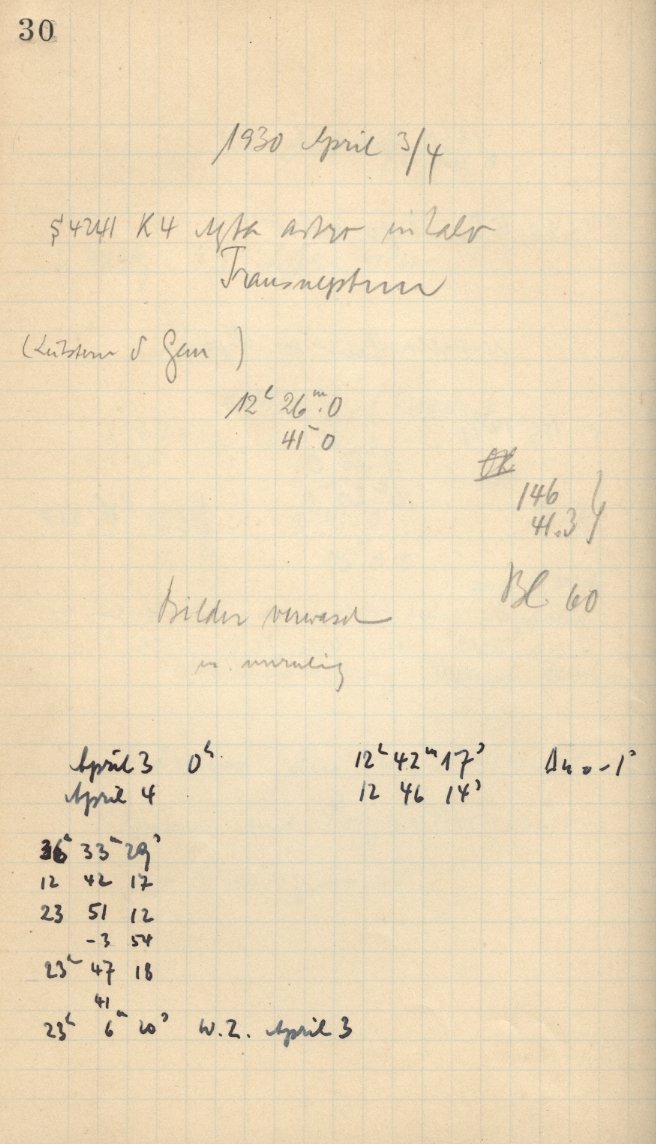 30
1930 April 3/4
S 4241 K4 Agfa astro
Transneptun
( δ Gem )
12ʰ 26ᵐ.0
41ᵐ 0
146
41.3
Bl. 60
Bilder verwasch
u. unruhig
April 3 0ʰ 12ʰ 42ᵐ 17ˢ Δu = -1ˢ
April 4 12 46 14ˢ
36ʰ 33ᵐ 29ˢ
12 42 17
23 51 12
-3 54
23ʰ 47 18
41
23ʰ 6ᵐ 20ˢ W.Z. April 3